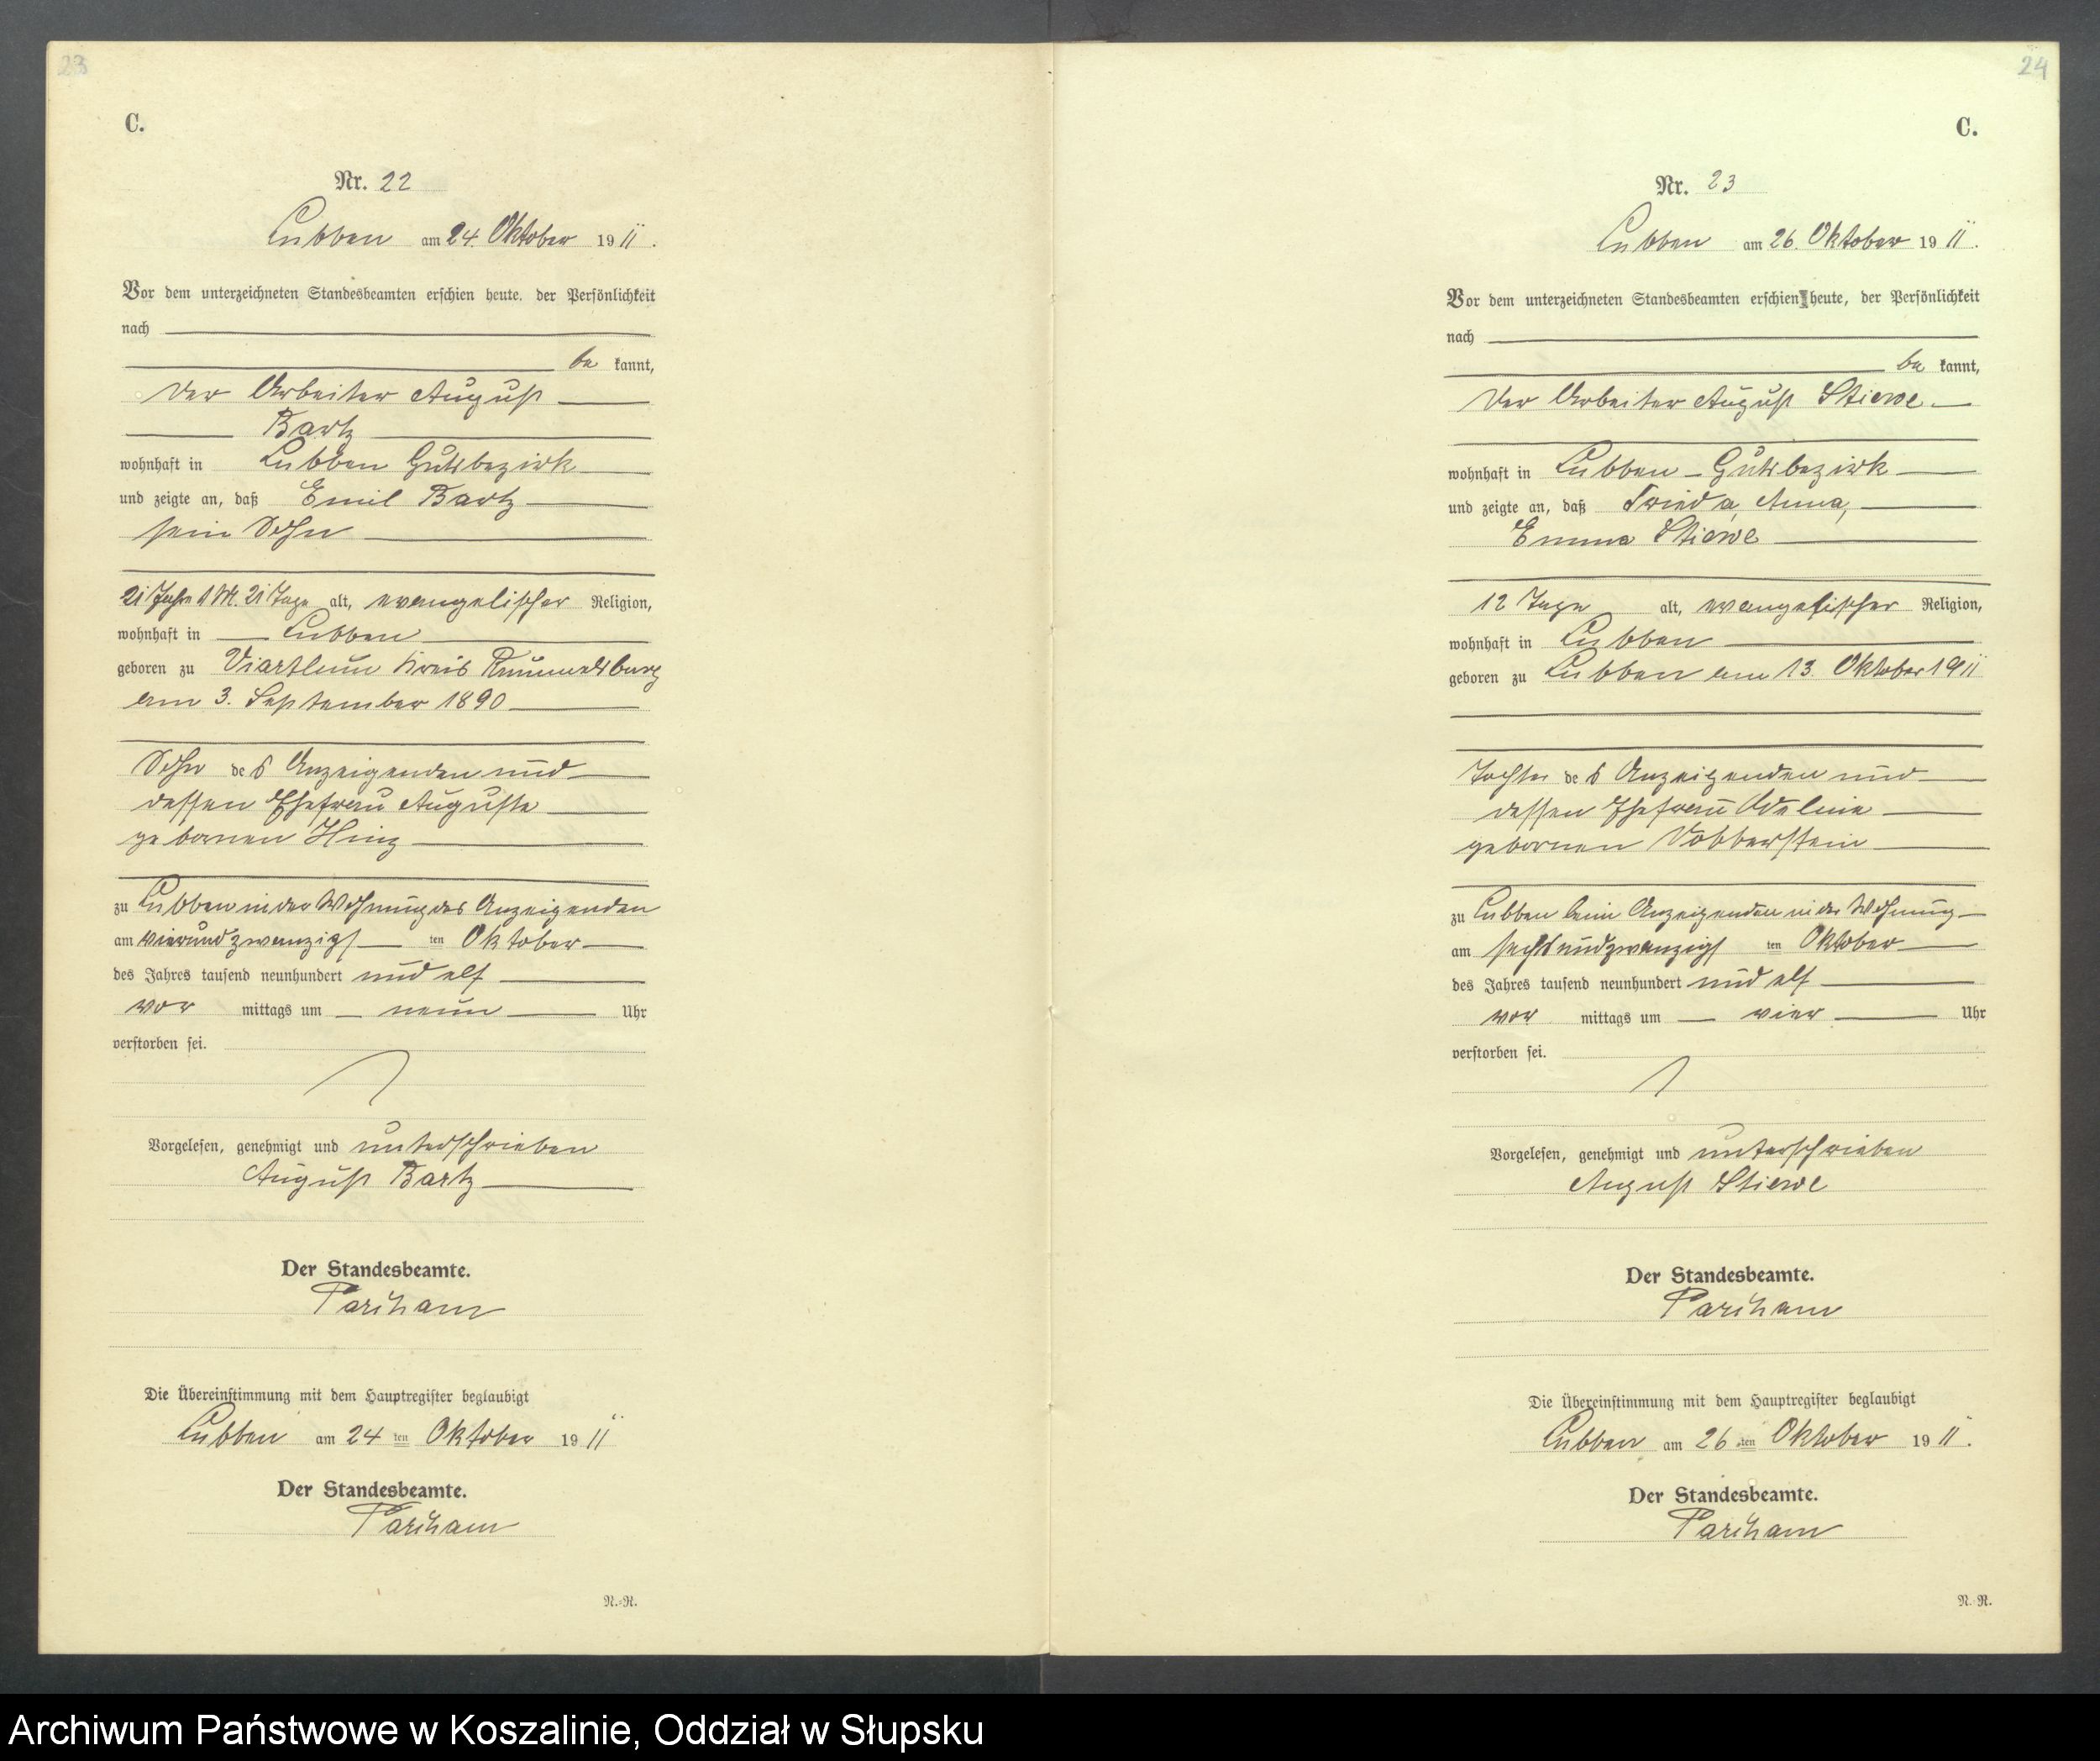 23
C.
Nr. 22
Lubben am 24. Oktober 1911.
Vor dem unterzeichneten Standesbeamten erschien heute, der Persönlichkeit
nach
be kannt,
der Arbeiter August
Bartz
wohnhaft in Lubben Gutsbezirk
und zeigte an, daß Emil Bartz
sein Sohn
21 Jahre 1 M. 21 Tage alt, evangelischer Religion,
wohnhaft in Lubben
geboren zu Viartlum Kreis Rummelsburg
am 3. September 1890
Sohn des Anzeigenden und
dessen Ehefrau Auguste
gebornen Hinz
zu Lubben in der Wohnung des Anzeigenden
am vierundzwanzigsten Oktober
des Jahres tausend neunhundert und elf
vor mittags um neun Uhr
verstorben sei.
Vorgelesen, genehmigt und unterschrieben
August Bartz
Der Standesbeamte.
Die Übereinstimmung mit dem Hauptregister beglaubigt
Lubben am 24 ten Oktober 1911
Der Standesbeamte.
N.-R.
24
C.
Nr. 23
Lubben am 26. Oktober 1911.
Vor dem unterzeichneten Standesbeamten erschien heute, der Persönlichkeit
nach
be kannt,
der Arbeiter August Stiewe
wohnhaft in Lubben-Gutsbezirk
und zeigte an, daß Frieda, Anna,
Emma Stiewe
12 Tage alt, evangelischer Religion,
wohnhaft in Lubben
geboren zu Lubben am 13. Oktober 1911
Tochter des Anzeigenden und
dessen Ehefrau Adeline
gebornen Vobberstein
zu Lubben beim Anzeigenden in der Wohnung
am sechsundzwanzigsten Oktober
des Jahres tausend neunhundert und elf
vor mittags um vier Uhr
verstorben sei.
Vorgelesen, genehmigt und unterschrieben
August Stiewe
Der Standesbeamte.
Die Übereinstimmung mit dem Hauptregister beglaubigt
Lubben am 26 ten Oktober 1911.
Der Standesbeamte.
N.-R.
Archiwum Państwowe w Koszalinie, Oddział w Słupsku